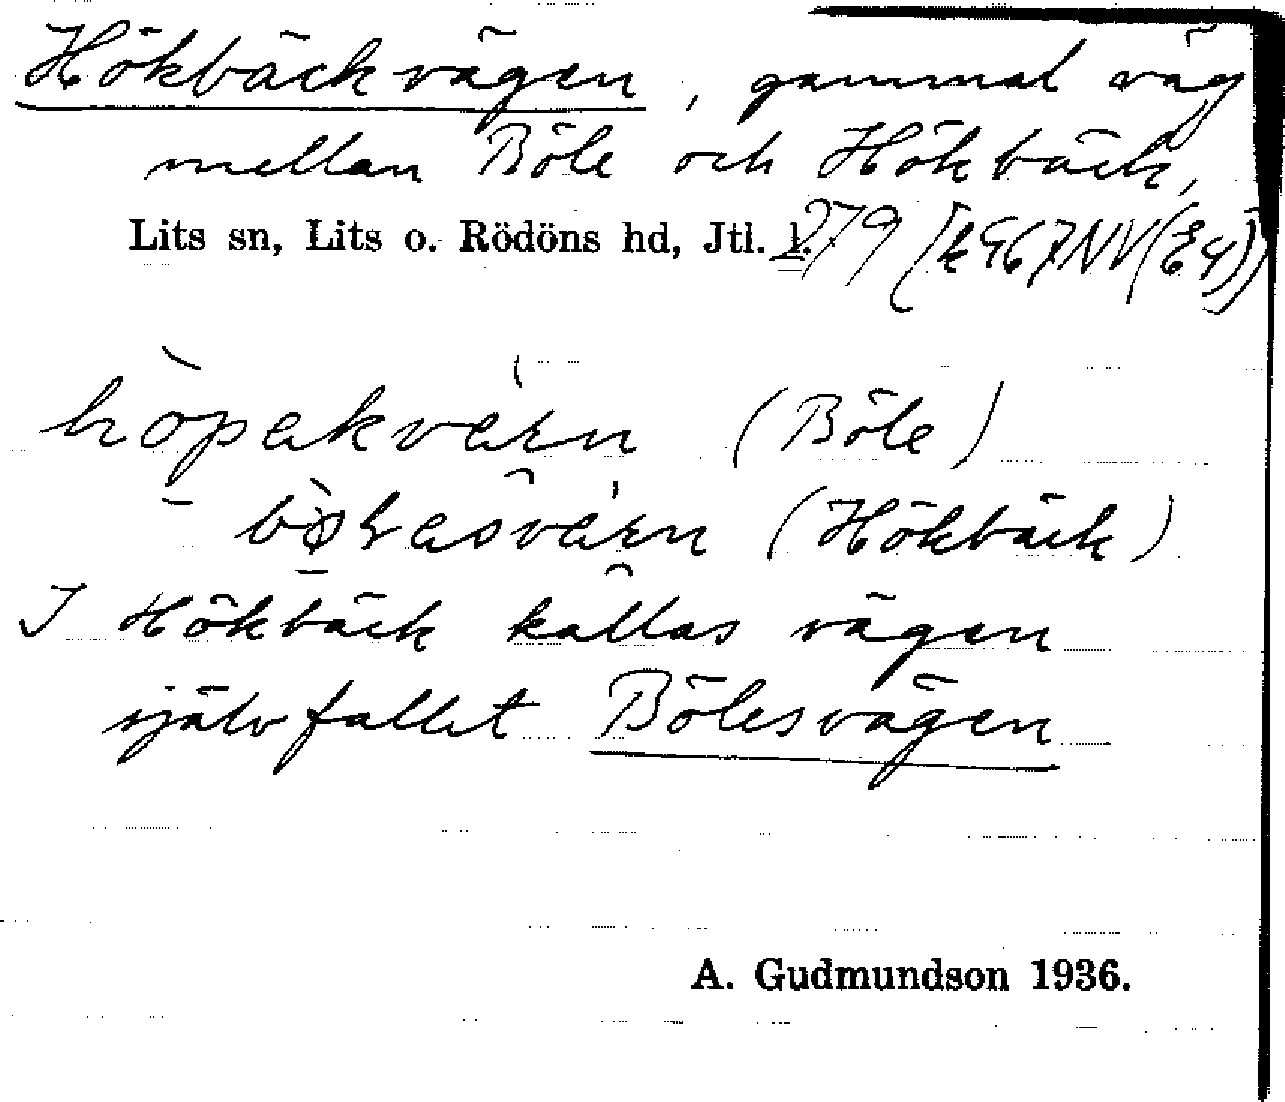 Hökbäckvägen, gammal väg
mellan Böle och Hökbäck,
Lits sn, Lits o. Rödöns hd, Jtl. l. 279
(Böle)
(Hökbäck)
I Hökbäck kallas vägen
självfallet Bölesvägen
A. Gudmundson 1936.